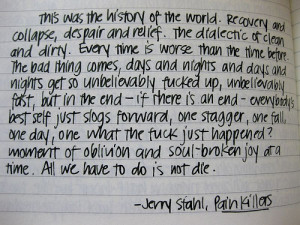 This was the history of the world. Recovery and
collapse, despair and relief. The dialectic of clean
and dirty. Every time is worse than the time before.
The bad thing comes, days and nights and days and
nights get so unbelievably fucked up, unbelievably
fast, but in the end - if there is an end - everybody's
best self just slogs forward, one stagger, one fall,
one day, one what the fuck just happened?
moment of oblivion and soul-broken joy at a
time. All we have to do is not die.
-Jerry Stahl, Pain Killers